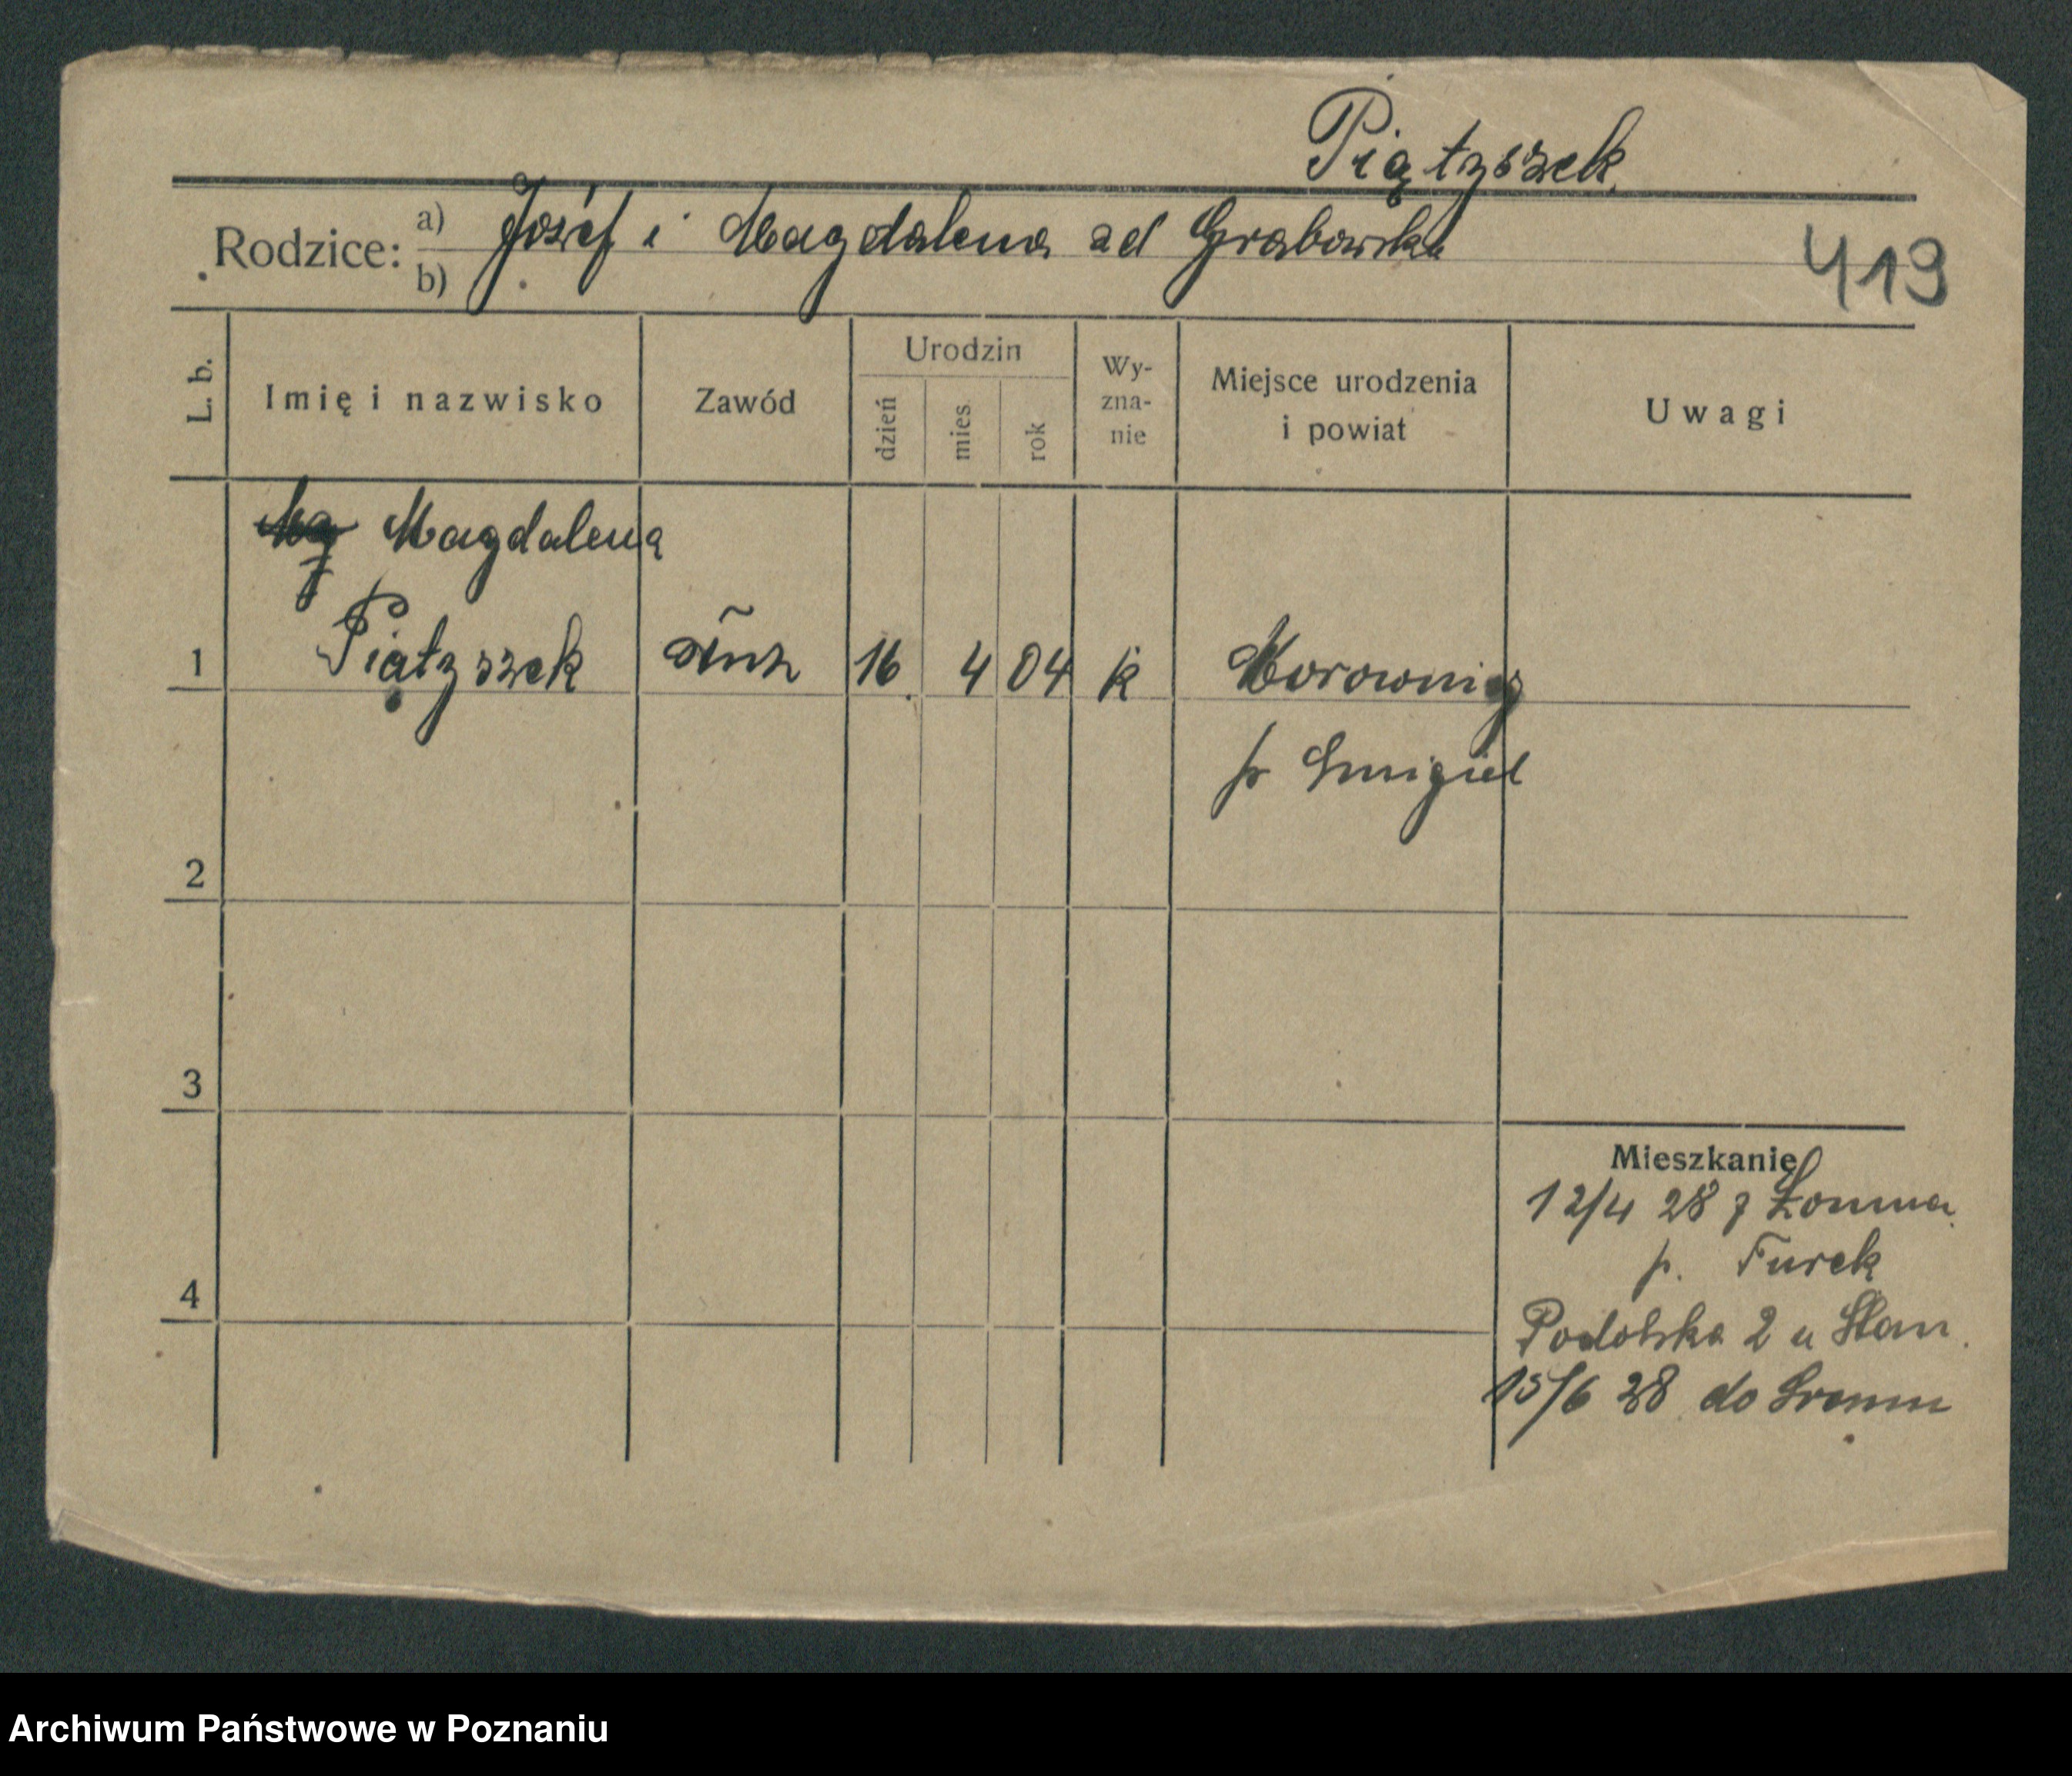 Piątzszek
Rodzice: a) Józef i Magdalena zd Grabowska
b)
419
L. b. Imię i nazwisko Zawód Urodzin dzień mies. rok Wy-zna-nie Miejsce urodzenia i powiat Uwagi
Magdalena
1 Piątzszek 16. 4 04 k Morownicy
p Smigiel
2
3
Mieszkanie
12/4 28 z
p. Turek
4
Podolska 2 u Stan.
15/6 28 do Sremu
Archiwum Państwowe w Poznaniu